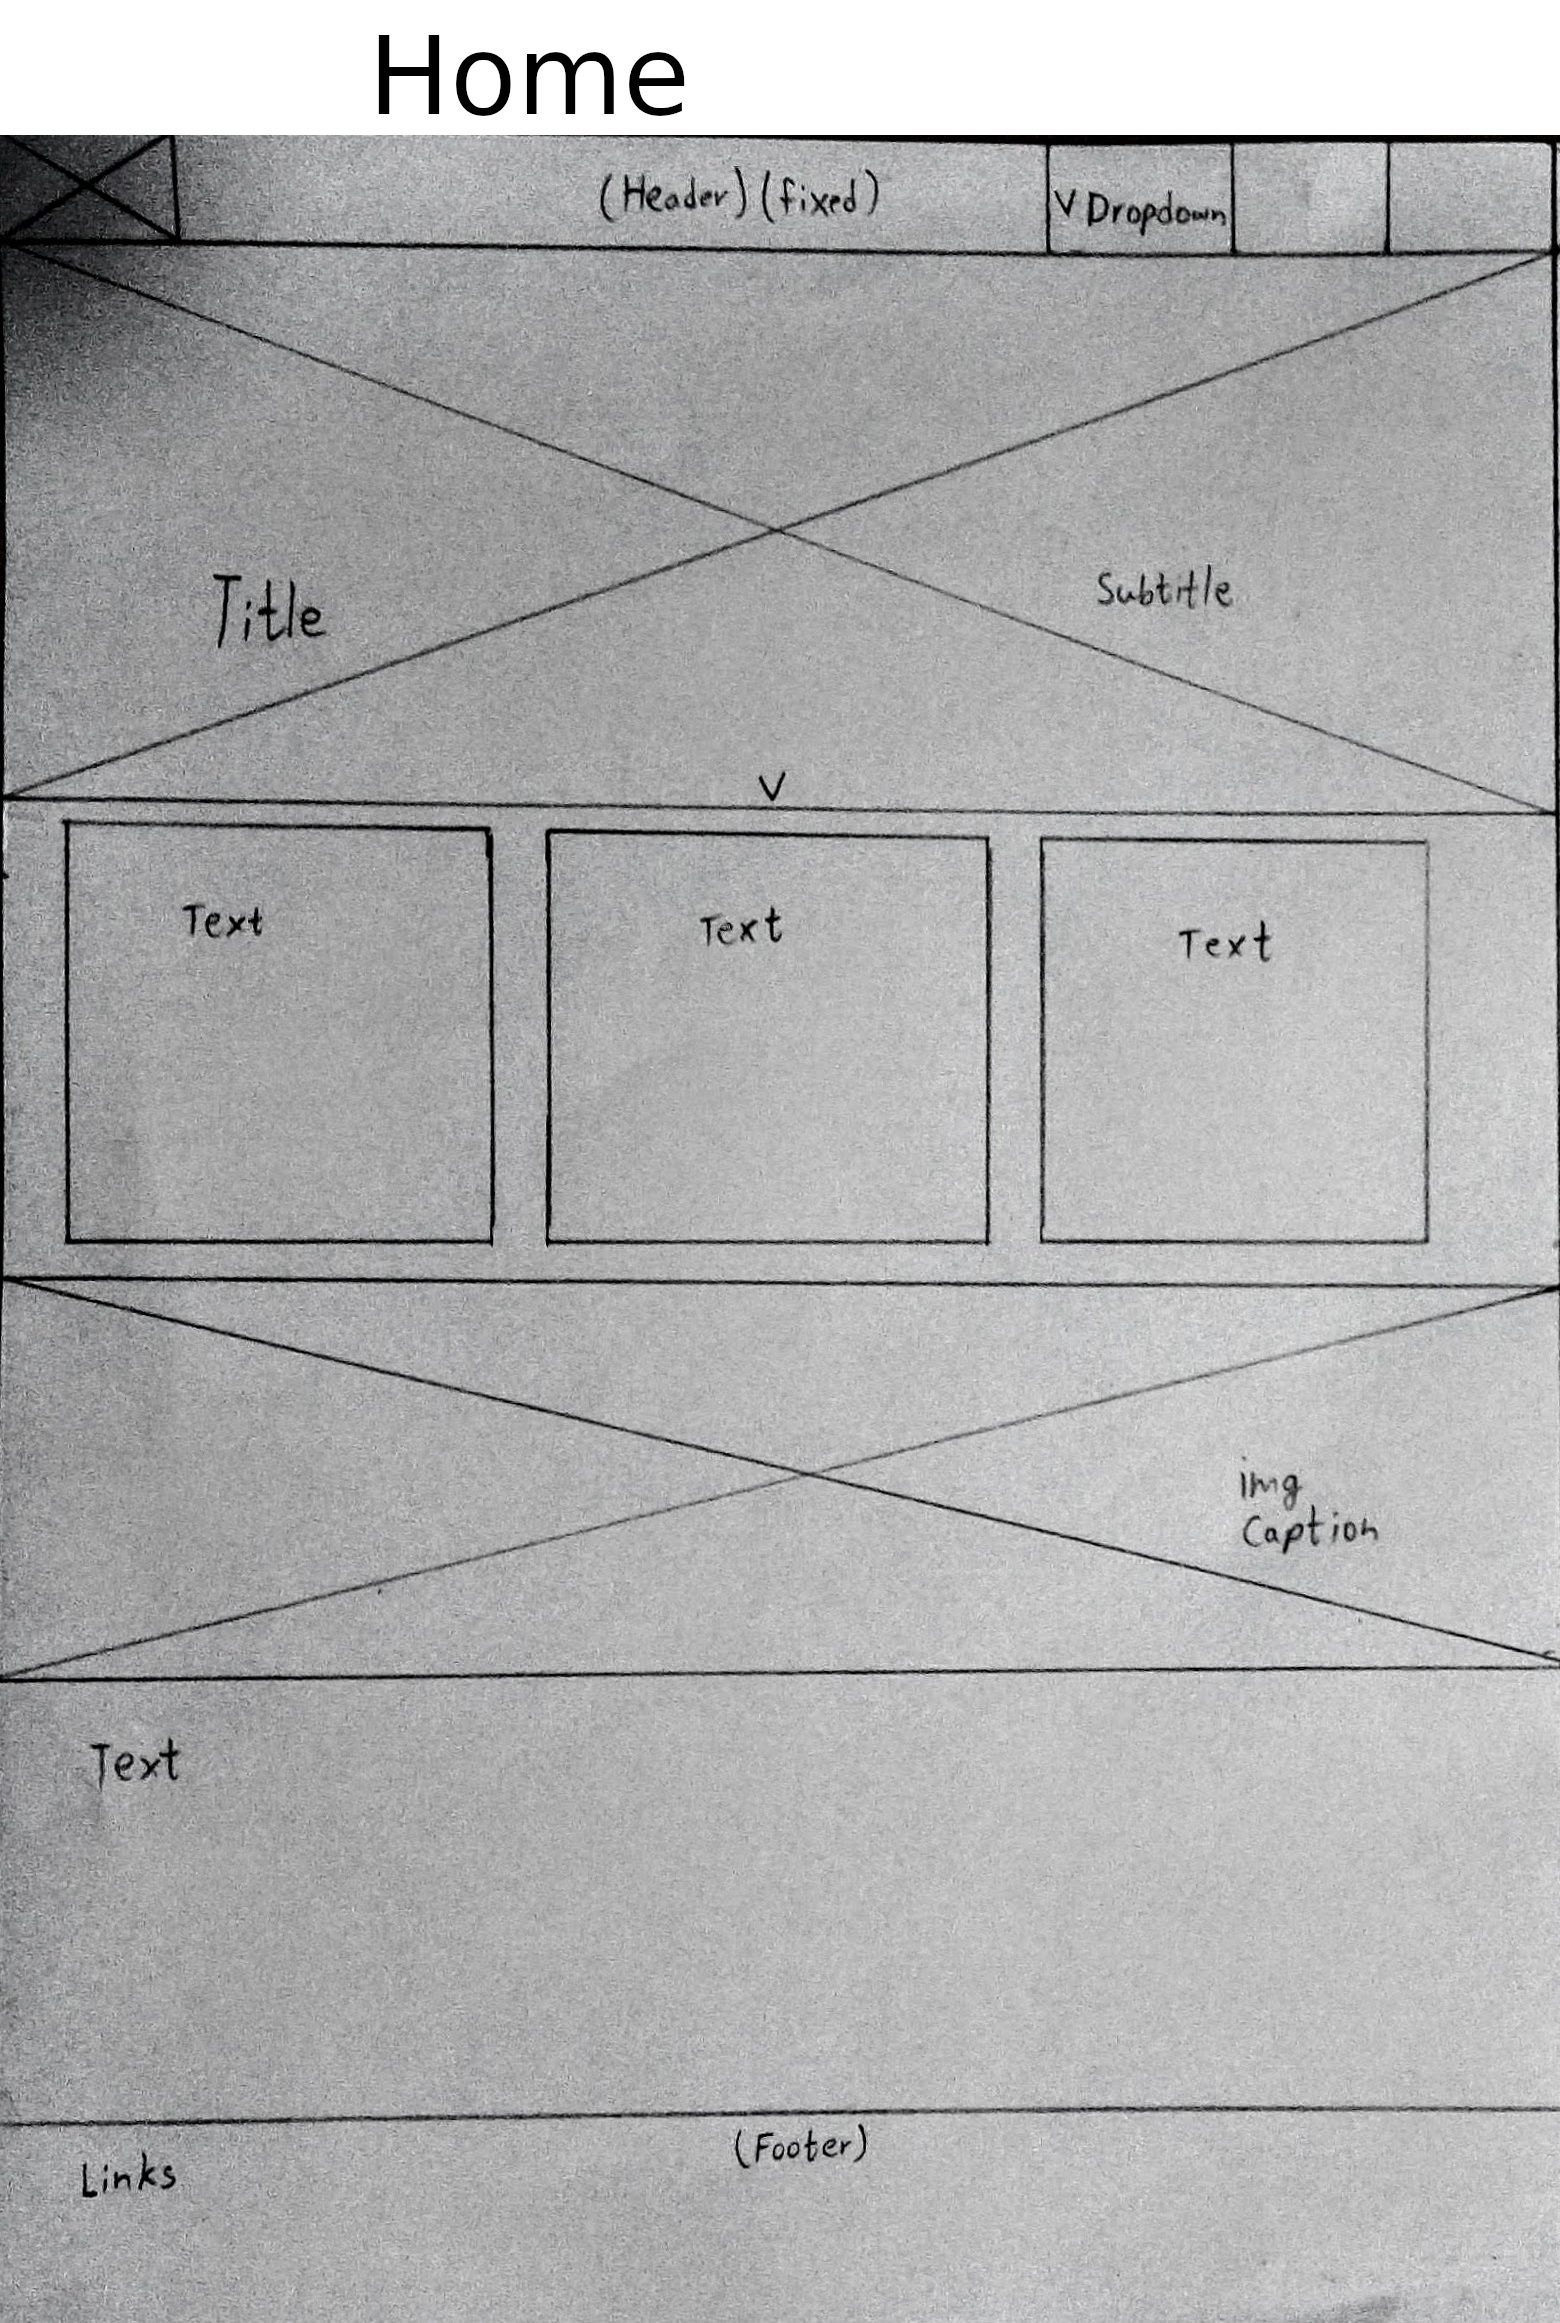 Home
(Header) (fixed)
V Dropdown
Title
Subtitle
V
Text
Text
Text
img
Caption
Text
(Footer)
Links